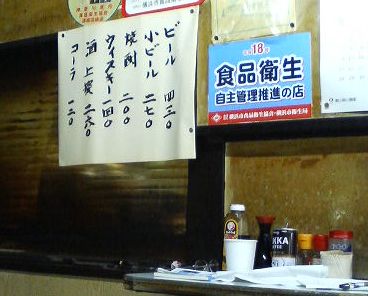 ビール 四三〇
小ビール 二七〇
焼酎 二〇〇
ウイスキー 一四〇
酒 上撰 二六〇
コーラ 一二〇
平成18年
食品衛生
自主管理推進の店
横浜市食品衛生協会・横浜市衛生局
KKA